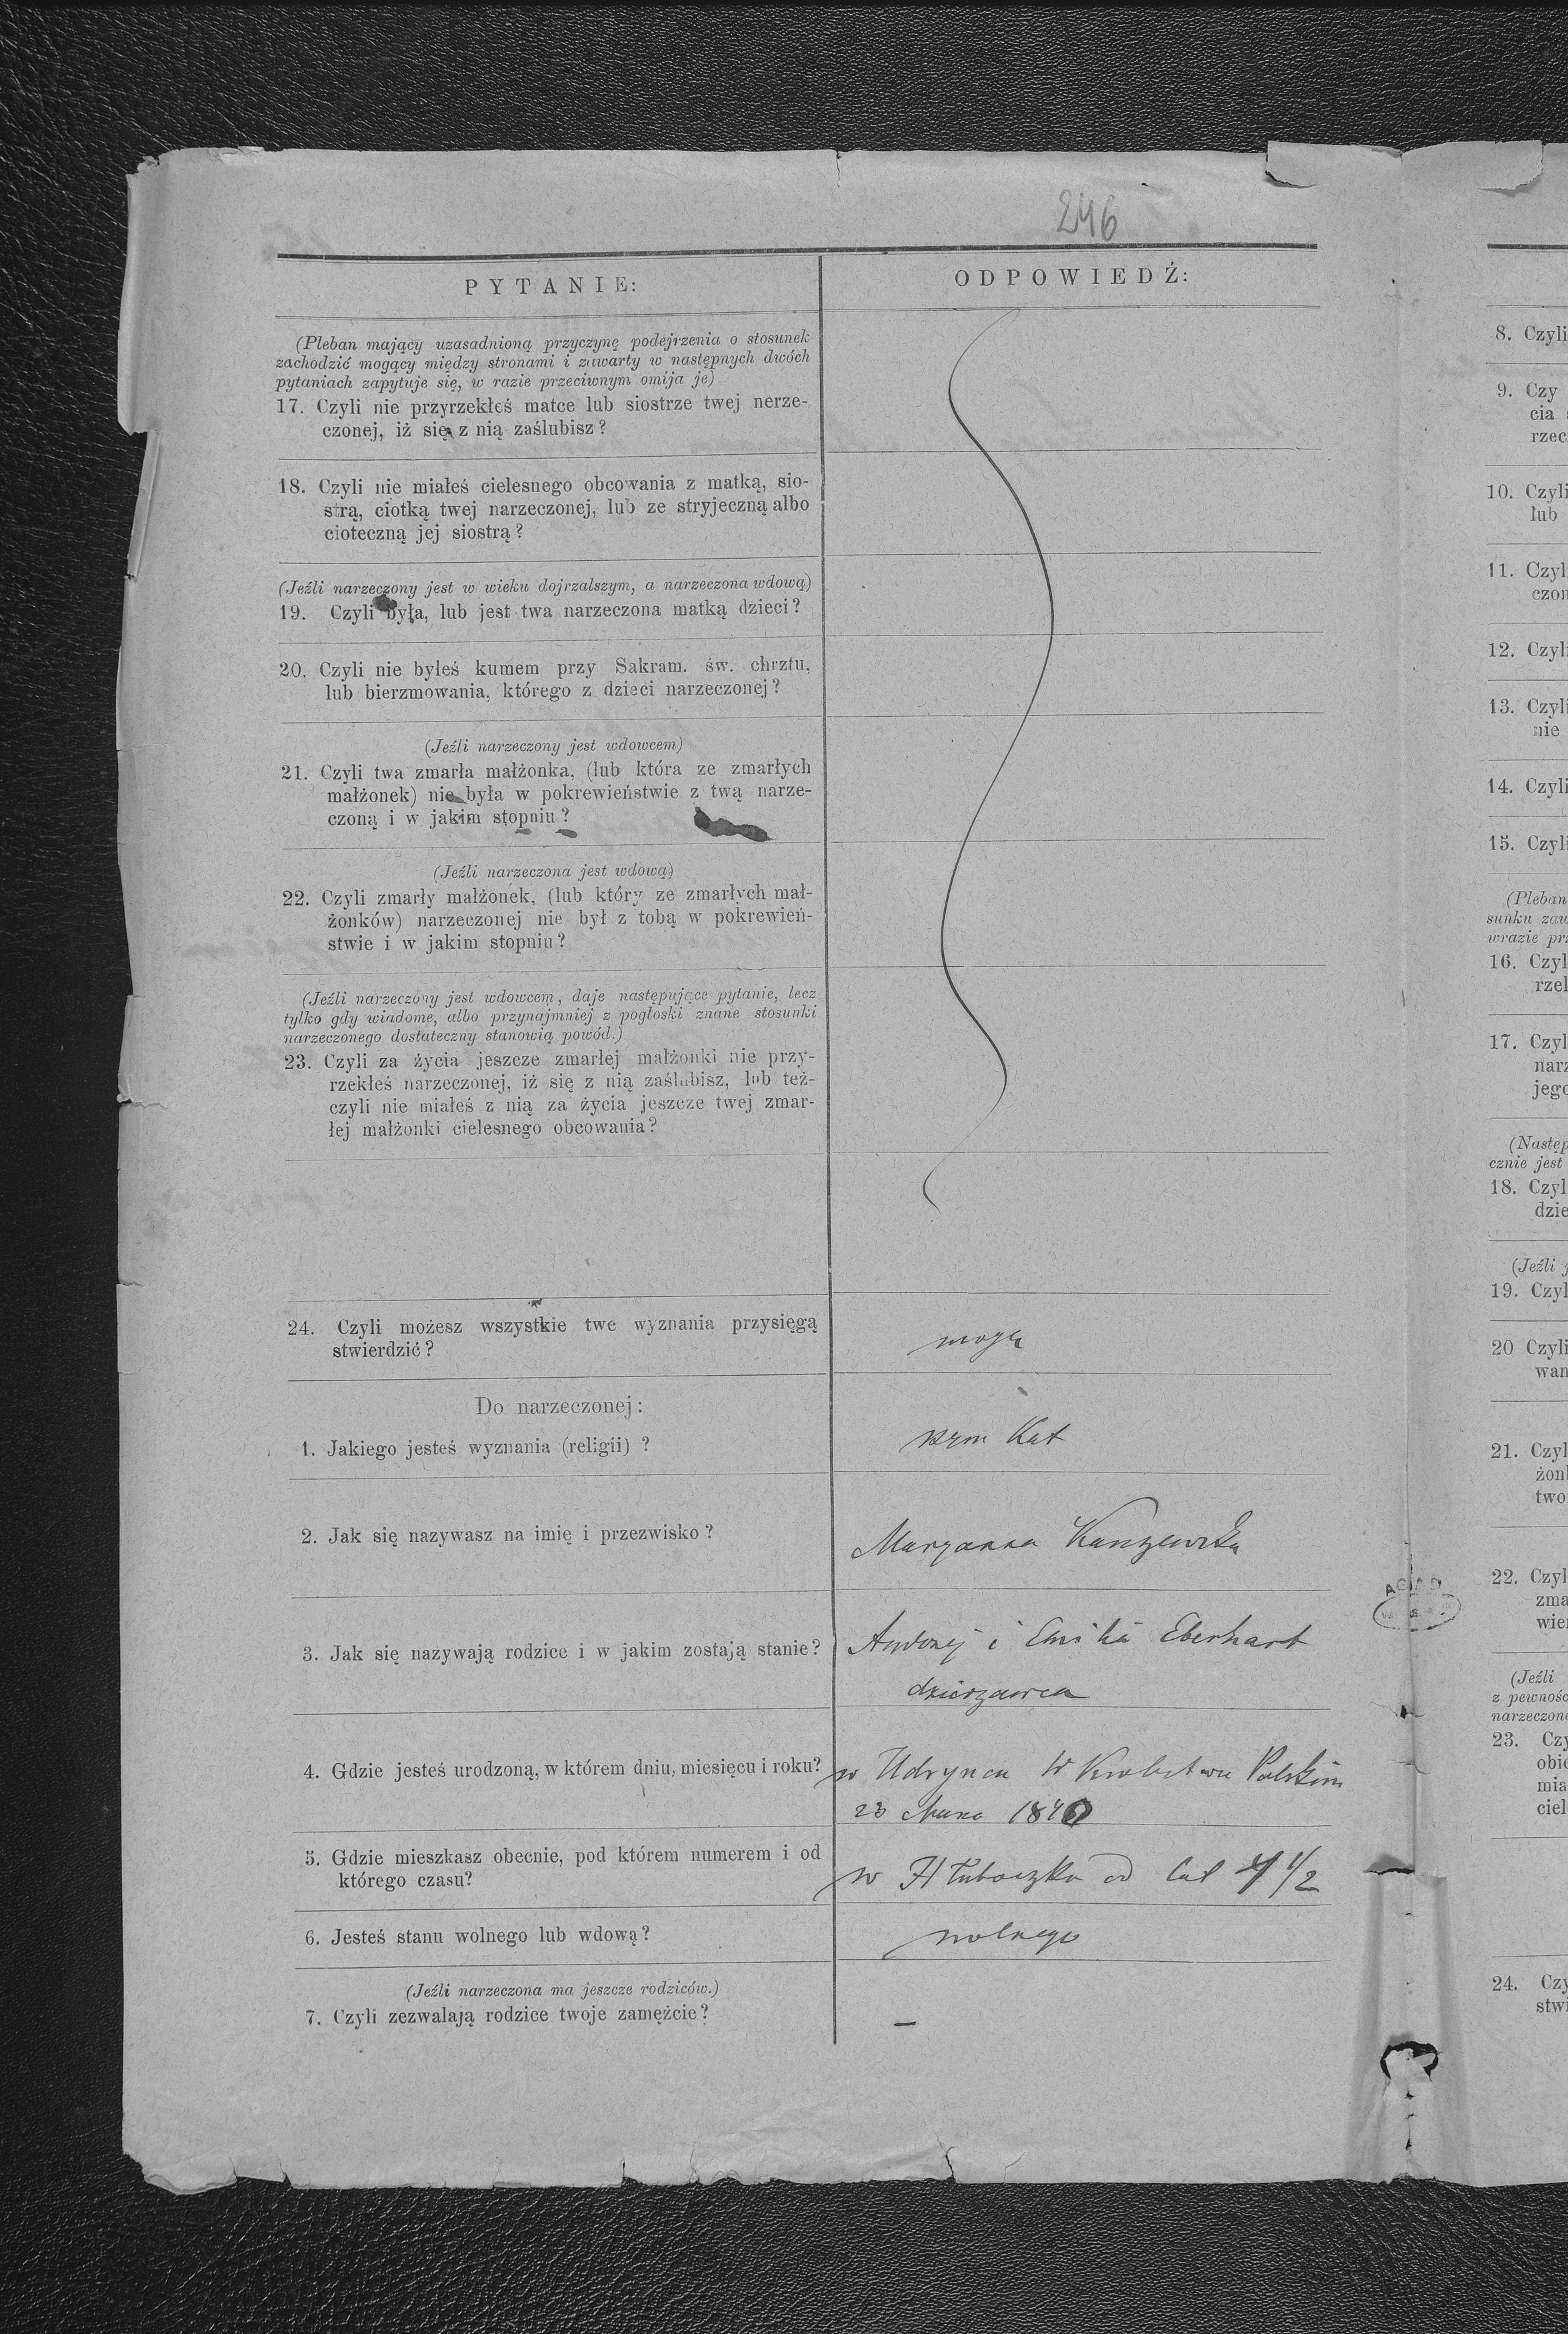 246
PYTANIE:
ODPOWIEDŹ:
(Pleban mający uzasadnioną przyczynę podejrzenia o stosunek
zachodzić mogący między stronami i zawarty w następnych dwóch
pytaniach zapytuje się, w razie przeciwnym omija je)
17. Czyli nie przyrzekłeś matce lub siostrze twej nerze-
czonej, iż się z nią zaślubisz?
18. Czyli nie miałeś cielesnego obcowania z matką, sio-
strą, ciotką twej narzeczonej, lub ze stryjeczną albo
cioteczną jej siostrą?
(Jeźli narzeczony jest w wieku dojrzalszym, a narzeczona wdową)
19. Czyli była, lub jest twa narzeczona matką dzieci?
20. Czyli nie byłeś kumem przy Sakram. św. chrztu,
lub bierzmowania, którego z dzieci narzeczonej?
(Jeźli narzeczony jest wdowcem)
21. Czyli twa zmarła małżonka, (lub która ze zmarłych
małżonek) nie była w pokrewieństwie z twą narze-
czoną i w jakim stopniu?
(Jeźli narzeczona jest wdową)
22. Czyli zmarły małżonek, (lub który ze zmarłych mał-
żonków) narzeczonej nie był z tobą w pokrewień-
stwie i w jakim stopniu?
(Jeźli narzeczony jest wdowcem, daje następujące pytanie, lecz
tylko gdy wiadome, albo przynajmniej z pogłoski znane stosunki
narzeczonego dostateczny stanowią powód.)
23. Czyli za życia jeszcze zmarłej małżonki nie przy-
rzekłeś narzeczonej, iż się z nią zaślubisz, lub też
czyli nie miałeś z nią za życia jeszcze twej zmar-
łej małżonki cielesnego obcowania?
24. Czyli możesz wszystkie twe wyznania przysięgą
stwierdzić?
mogę
Do narzeczonej:
1. Jakiego jesteś wyznania (religii) ?
rzym Kat
2. Jak się nazywasz na imię i przezwisko?
Maryanna
3. Jak się nazywają rodzice i w jakim zostają stanie?
Andrzej i Emilia Eberhart
dzierzawca
4. Gdzie jesteś urodzoną, w którem dniu, miesięcu i roku?
w W Polskim
23
5. Gdzie mieszkasz obecnie, pod którem numerem i od
którego czasu?
w Hłuboczku od lat 4 1/2
6. Jesteś stanu wolnego lub wdową?
wolnego
(Jeźli narzeczona ma jeszcze rodziców.)
7. Czyli zezwalają rodzice twoje zamężcie?
—
8. Czyli
9. Czy
cia
rzec
10. Czyli
lub
11. Czyl
czon
12. Czyl
13. Czyli
nie
14. Czyli
15. Czyli
(Pleban
sunku zaw
wrazie prz
16. Czyl
rzel
17. Czyl
narz
jego
(Następ
cznie jest
18. Czyl
dzie
(Jeźli
19. Czyl
20 Czyli
wan
21. Czyl
żonl
two
22. Czyl
zma
wie
(Jeźli
z pewnośc
narzeczone
23. Czy
obie
mia
ciel
24. Czy
stwi